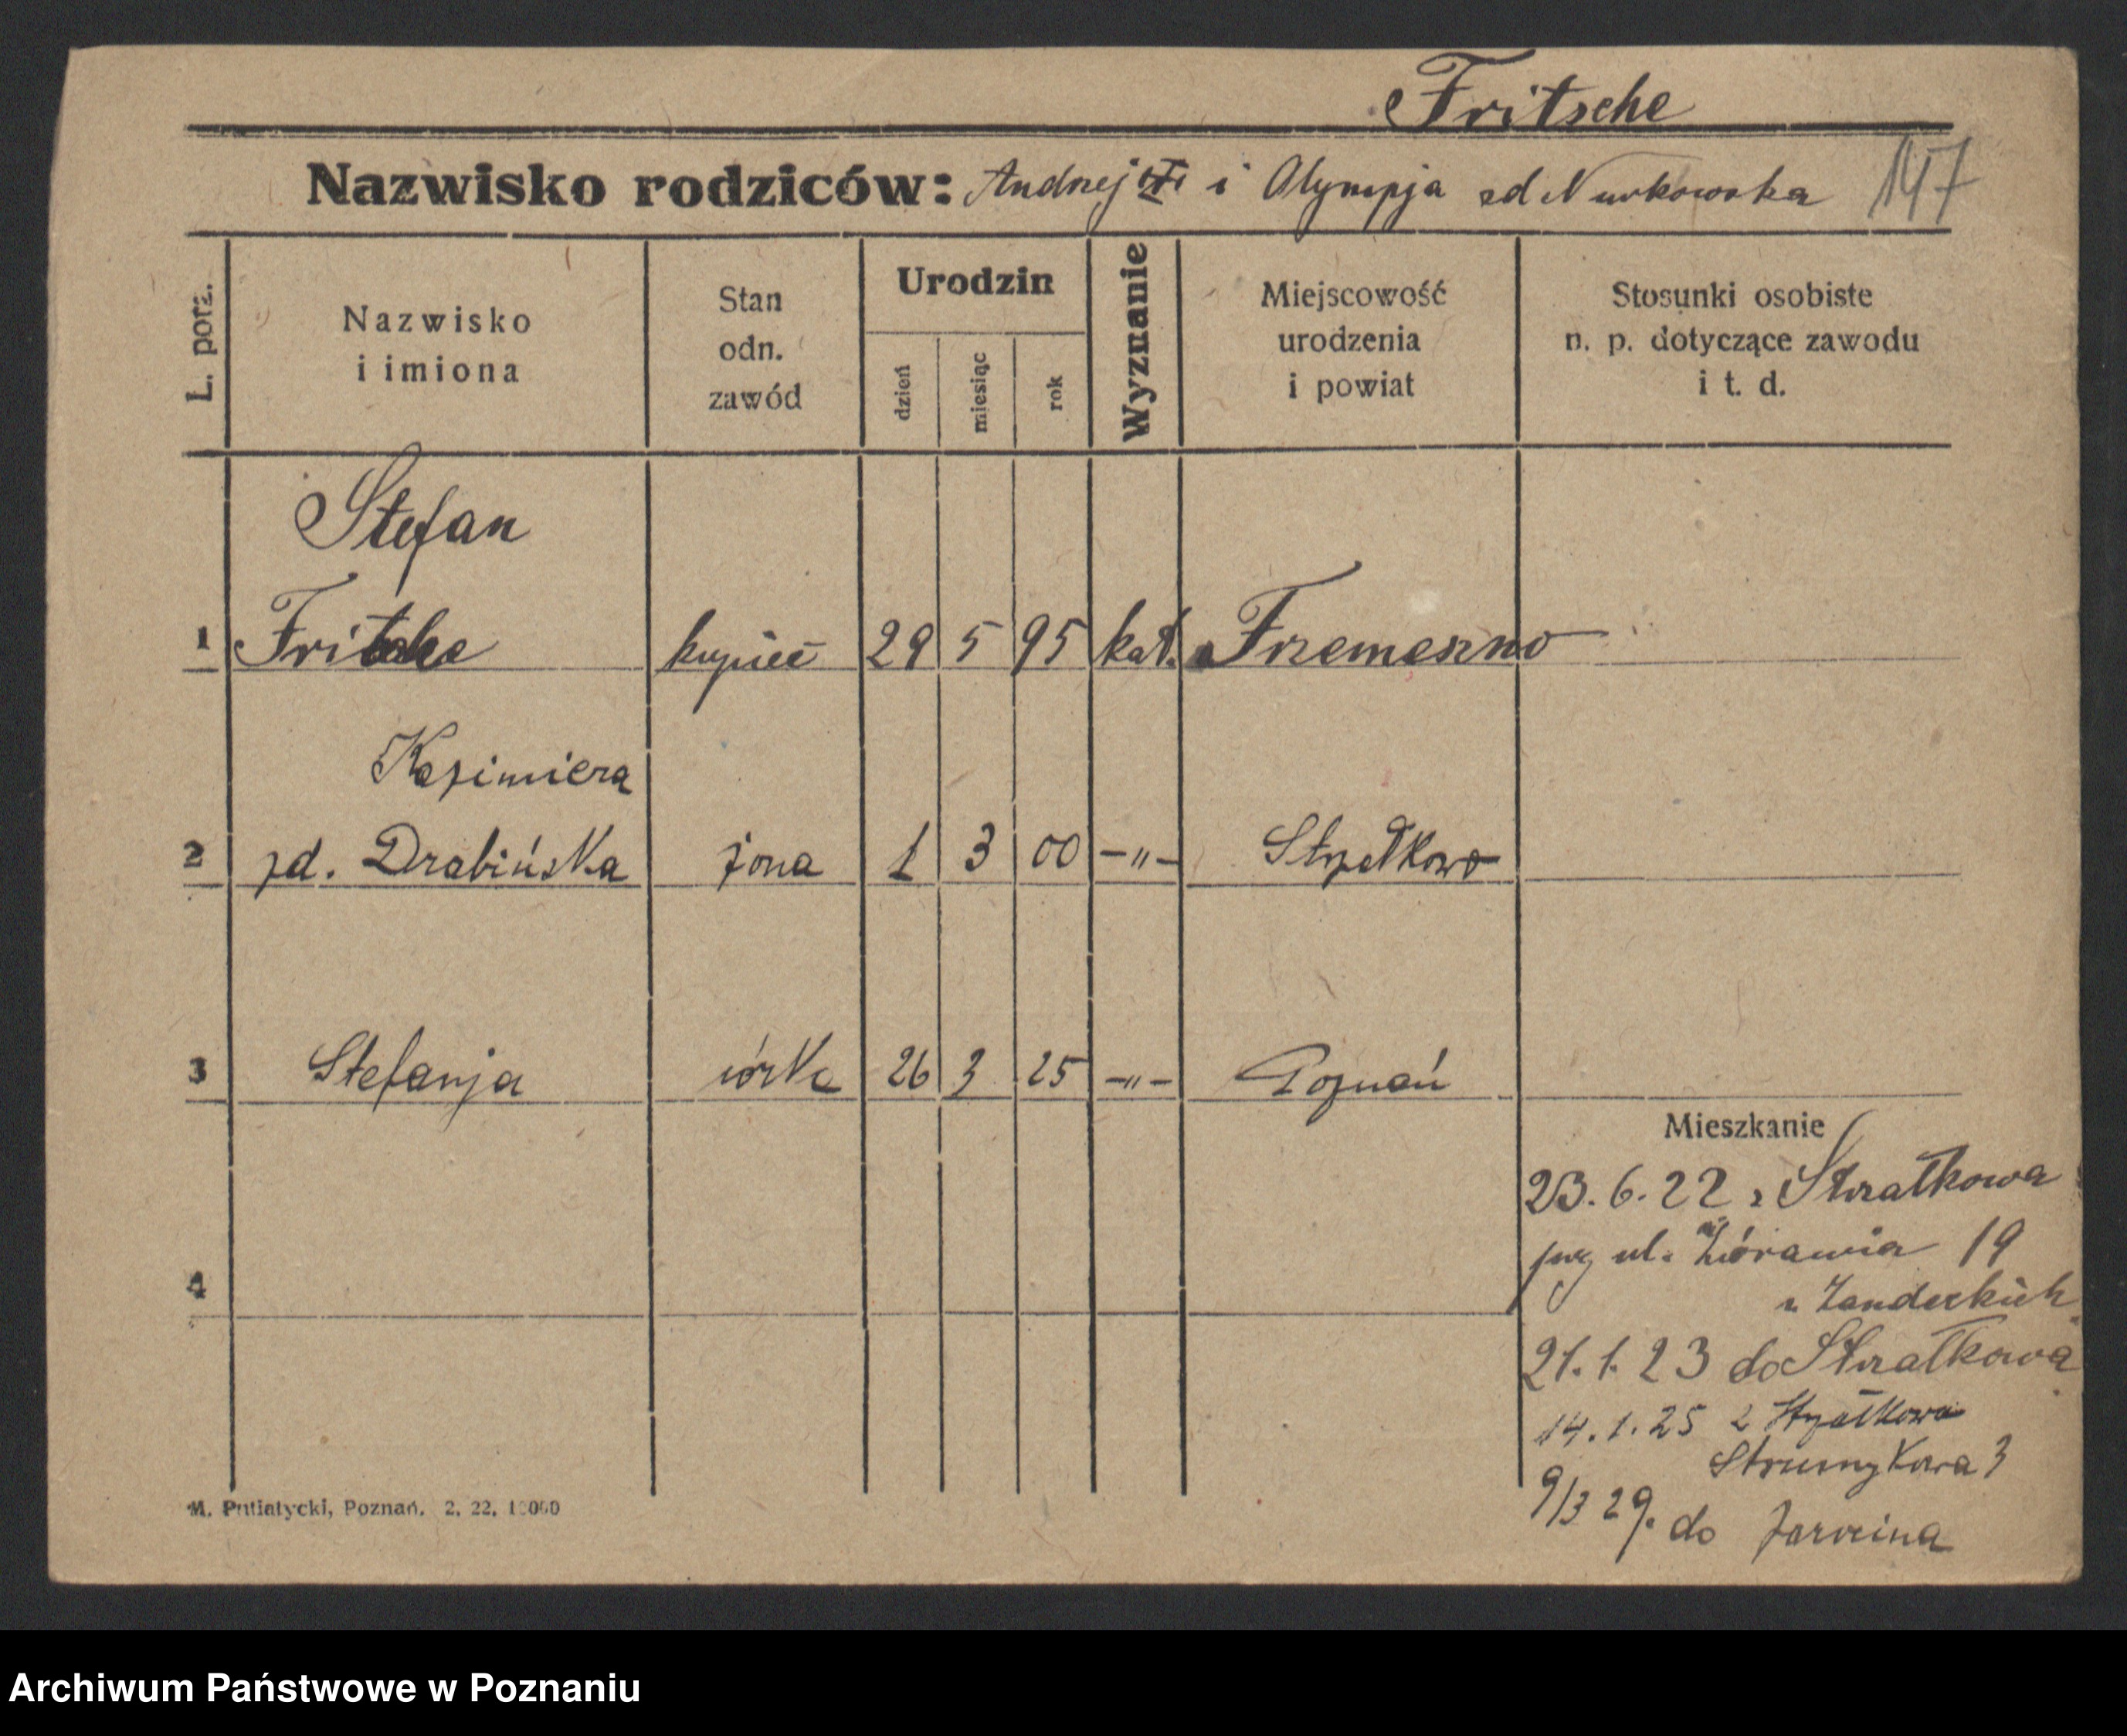 Fritsche
Nazwisko rodziców: Andrzej i Olympja zd Nurkowska 147
L. porz.
Nazwisko
i imiona
Stan
odn.
zawód
Urodzin
dzień
miesiąc
rok
Wyznanie
Miejscowość
urodzenia
i powiat
Stosunki osobiste
n. p. dotyczące zawodu
i t. d.
Stefan
1 Fritsche kupiec 29 5 95 kat. Trzemeszno
Kazimiera
2 zd. Drabińska żona 1 3 00 -"- Strzałkowo
3 Stefanja córka 26 3 25 -"- Poznań
Mieszkanie
23.6.22 z Strzałkowa
ul. Żórawia 19
u
4
21.1.23 do Strzałkowa
14.1.25 z Strzałkowa
Strumykowa 3
9/3 29. do Jarocina
M. Putiatycki, Poznań. 2. 22. 10000
Archiwum Państwowe w Poznaniu